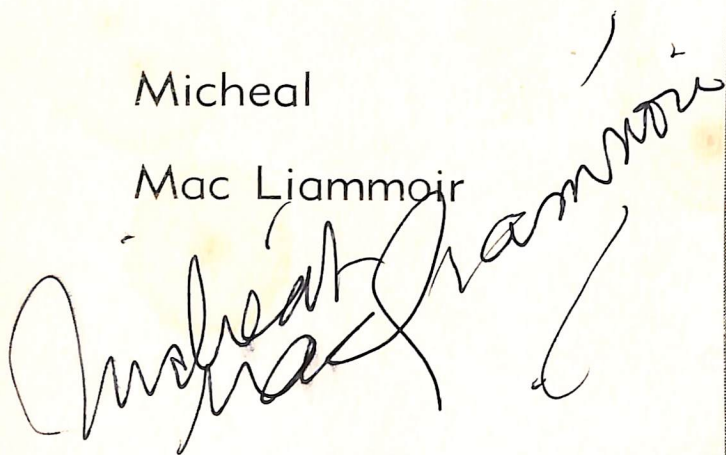 Micheal
Mac Liammoir
Micheál
Mac Liammóir